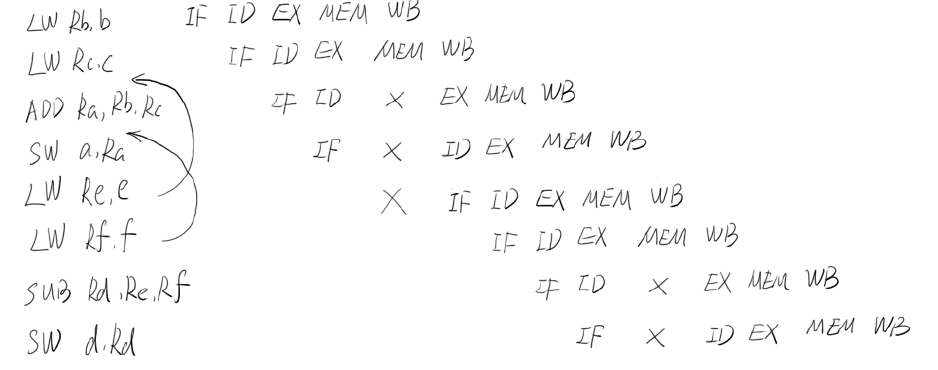 LW Rb,b IF ID EX MEM WB
LW Rc.c IF ID EX MEM WB
ADD Ra,Rb.Rc IF ID X EX MEM WB
SW a,Ra IF X ID EX MEM WB
LW Re,e X IF ID EX MEM WB
LW Rf.f IF ID EX MEM WB
SUB Rd,Re,Rf IF ID X EX MEM WB
SW d,Rd IF X ID EX MEM WB